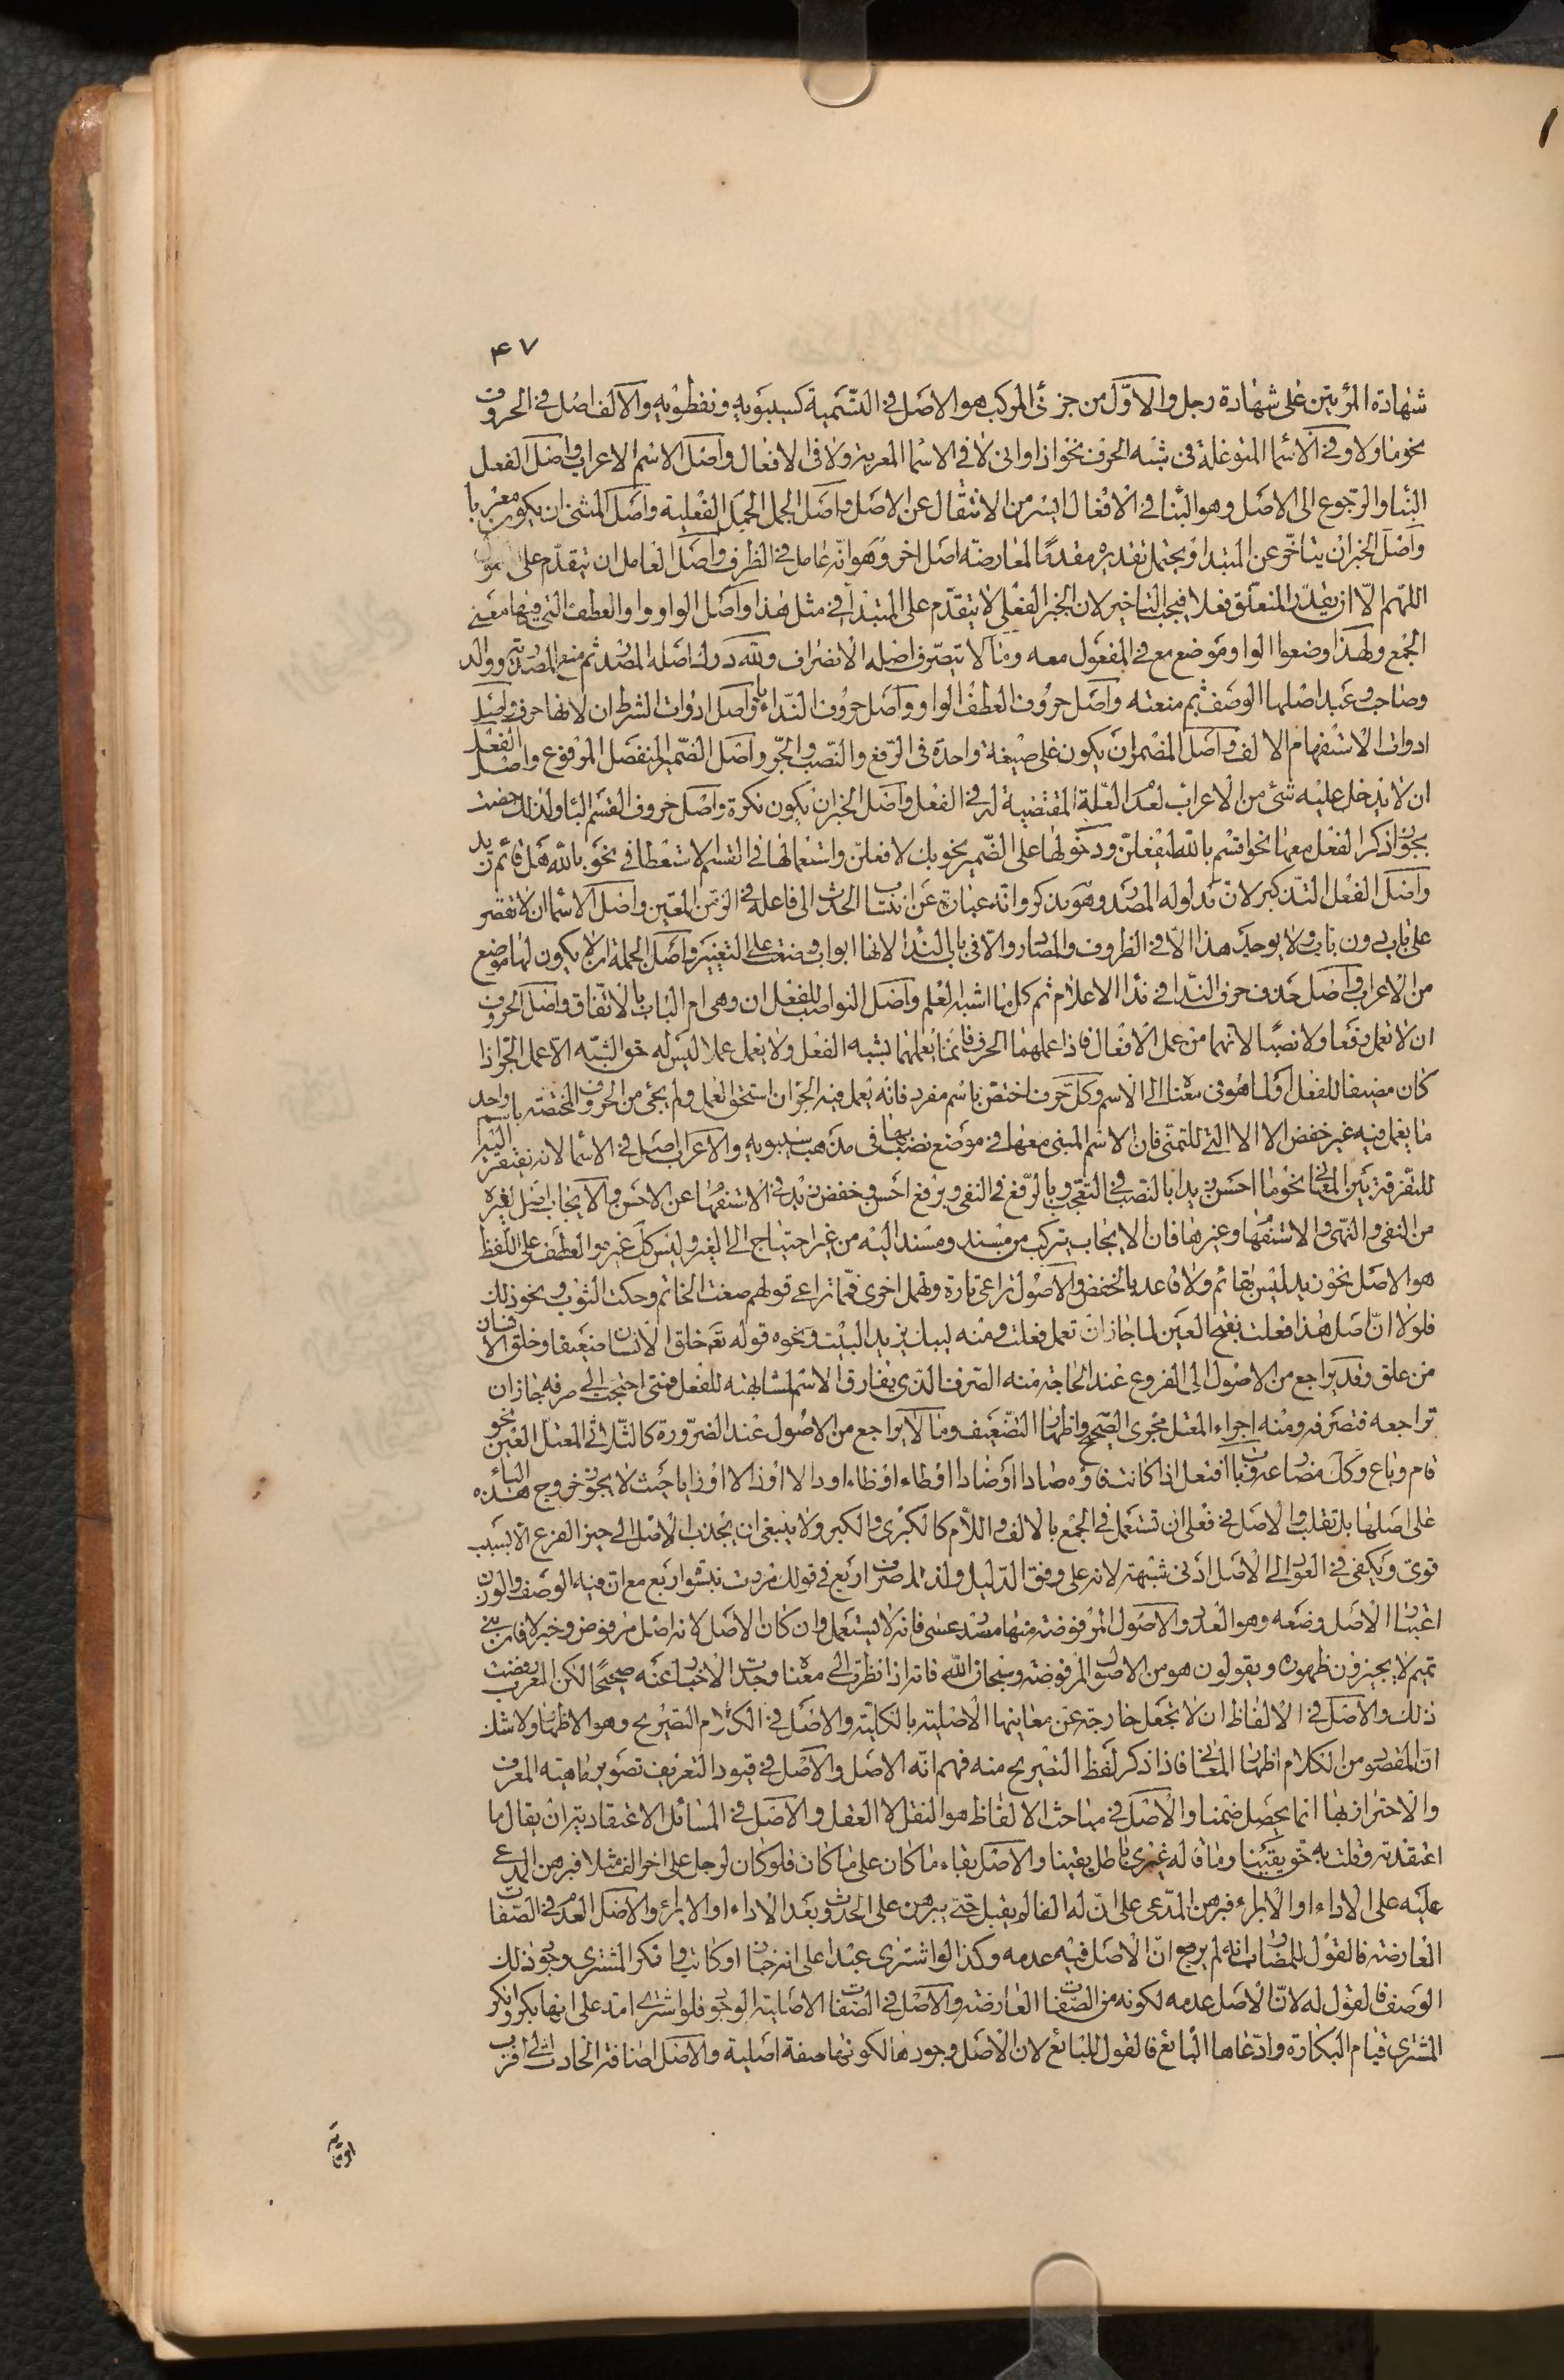 ۴۷
شهادة المرئيين على شهادة رجل والاوّل من جزئى المركب هو الاصل فى التسمية كسيبويه ونفطويه والالف اصل فى الحروف
نحو ما ولا وفى الاسما المتوغلة فى شبه الحرف نحو اذا وانى لا فى الاسما المعربة ولا فى الافعال واصل الاسم الاعراب واصل الفعل
البنا والرجوع الى الاصل وهو البنا فى الافعال ايسر من الانتقال عن الاصل واصل الجمل الجمل الفعلية واصل المثنى ان يكون معربا
واصل الخبر ان يتاخر عن المبتدا ويحتمل تقديره مقدما لمعارضته اصل اخر وهو انه عامل فى الظرف واصل العامل ان يتقدم على
اللهم الّا ان يقدر المتعلق فعلا فيجب التاخير لان الخبر الفعلى لا يتقدم على المبتدا فى مثل هذا واصل الواو واو العطف التى فيها معنى
الجمع ولهذا وضعوا الواو موضع مع فى المفعول معه وما لا يتصرف اصله الانصراف ولله درك اصله المصدر ثم منع المصدرية ووالد
وصاحب وعبد اصلها الوصف ثم منعته واصل حروف العطف الواو واصل حروف النداء يا واصل ادوات الشرط ان لانها حرف واصل
ادوات الاستفهام الالف واصل المضمر ان يكون على صيغة واحدة فى الرفع والنصب والجر واصل الضمير المنفصل المرفوع واصل الفعل
ان لا يدخل عليه شئ من الاعراب لعدم العلة المقتضية له فى الفعل واصل الخبر ان يكون نكرة واصل حروف القسم البا ولذلك خصت
بجواز ذكر الفعل معها نحو اقسم بالله ليفعلن ودخولها على الضمير نحو بك لافعلن واستعمالها فى القسم الاستعطافى نحو بالله هل قائم زيد
واصل الفعل التذكير لان مدلوله المصدر وهو مذكر وانه عبارة عن انتساب الحدث الى فاعله فى الزمن المعين واصل الاسما ان لا تقصر
على باب دون باب ولا يوجد هذا الا فى الظروف والمصادر والا فى باب الندا لانها ابواب وضعت على التغيير واصل الجملة ان لا يكون لها موضع
من الاعراب واصل حذف حرف الندا فى ندا الاعلام ثم كل ما اشبه العلم واصل النواصب للفعل ان وهى ام الباب بالاتفاق واصل الحروف
ان لا تعمل رفعا ولا نصبا لانهما من عمل الافعال فاذا عملهما الحرف فانما يعملهما بشبه الفعل ولا يعمل عملا ليس له حق الشبه الا عمل الجر اذا
كان مضيفا للفعل او لما هو فى معناه الى الاسم وكل حرف اختص باسم مفرد فانه يعمل فيه الجر ان استحق العمل ولم يجئ من الحروف المختصة باسم واحد
ما يعمل فيه غير خفض الا الا التى للتمنى فان الاسم المبنى معها فى موضع نصب بها فى مذهب سيبويه والاعراب اصل فى الاسما لانه يفتقر اليه
للتفرقة بين المعانى نحو ما احسن زيدا بالنصب فى التعجب وبالرفع فى النفى وبرفع احسن وخفض زيد فى الاستفهام عن الاحسن والايجاب اصل لغيره
من النفى والنهى والاستفهام وغيرها فان الايجاب يتركب من مسند ومسند اليه من غير احتياج الى الغير وليس كل غيره والعطف على اللفظ
هو الاصل نحو زيد ليس بقائم ولا قاعد بالخفض والاصول تراعى تارة وتهمل اخرى فمما تراعى قولهم صغت الخاتم وحكت الثوب ونحو ذلك
فلولا ان اصل هذا فعلت بفتح العين لما جاز ان تعمل فعلت ومنه ليبك يزيد البيت ونحوه قوله تعـ خلق الانسان ضعيفا وخلق الانسان
من علق وقد يراجع من الاصول الى الفروع عند الحاجة منه الصرف الذى يفارق الاسم لمشابهته للفعل فمتى احتجت الى صرفه جاز ان
تراجعه فتصرفه ومنه اجراء المعتل مجرى الصحيح واظهار التضعيف وما لا يراجع من الاصول عند الضرورة كالثلاثى المعتل العين نحو
قام وباع وكل مضارعه وباب افتعل اذا كانت فاؤه صادا او ضادا او طاء او ظاء او دالا او ذالا او زايا حيث لا يجوز خروج هذه البائ
على اصلها بل تقلب والاصل فى فعلى ان تستعمل فى الجمع بالالف واللام كالكبرى والكبر ولا ينبغى ان يجذب الاصل الى حيز الفرع الا بسبب
قوى ويكفى فى العود الى الاصل ادنى شبهة لانه على وفق الدليل ولذا صرف اربع فى قولك مررت بنسوة اربع مع ان فيه الوصف والوزن
اعتبارا لاصل وضعه وهو العدد والاصول المرفوضة منها مصدر عسى فانه لا يستعمل وان كان الاصل لانه اصل مرفوض وخبر لا فان بنى
تميم لا يجيزون ظهوره ويقولون هو من الاصول المرفوضة وسبحان الله فانه اذا نظرت الى معناه وجدت الاخبار عنه صحيحا لكن العرب رفضت
ذلك والاصل فى الالفاظ ان لا تجعل خارجة عن معانيها الاصلية بالكلية والاصل فى الكلام التصريح وهو الاظهار ولا شك
ان المقصود من الكلام اظهار المعانى فاذا ذكر لفظ التصريح منه فهم انه الاصل والاصل فى قيود التعريف تصوير ماهية المعرف
والاحتراز بها انما يحصل ضمنا والاصل فى مباحث الالفاظ هو النقل لا العقل والاصل فى المسائل الاعتقادية ان يقال ما
اعتقدته وقلت به حق يقينا وما قاله غيرى باطل يقينا والاصل بقاء ما كان على ما كان فلو كان لرجل على اخر الف مثلا فبرهن المدعى
عليه على الاداء او الابراء فبرهن المدعى على ان له الفا لم يقبل حتى يبرهن على الحدوث بعد الاداء او الابراء والاصل العدم فى الصفات
العارضة فالقول للمضارب انه لم يربح ان الاصل فيه عدمه وكذا لو اشترى عبدا على انه خباز او كاتب وانكر المشترى وجود ذلك
الوصف فالقول له لان الاصل عدمه لكونه من الصفات العارضة والاصل فى الصفات الاصلية الوجود فلو اشترى امة على انها بكر وانكر
المشترى قيام البكارة وادعاها البائع فالقول للبائع لان الاصل وجودها لكونها صفة اصلية والاصل اضافة الحادث الى اقرب
اوقاته